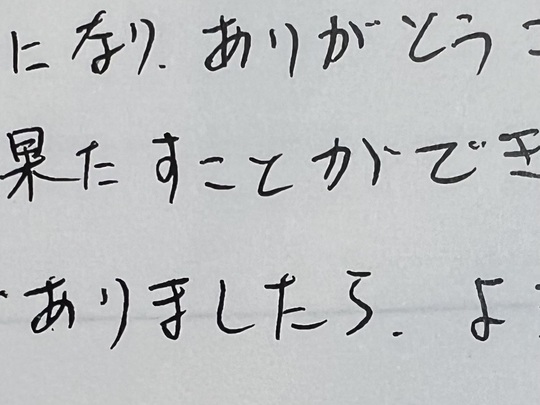 になり、ありがとうご
果たすことができ
ありましたら、よ